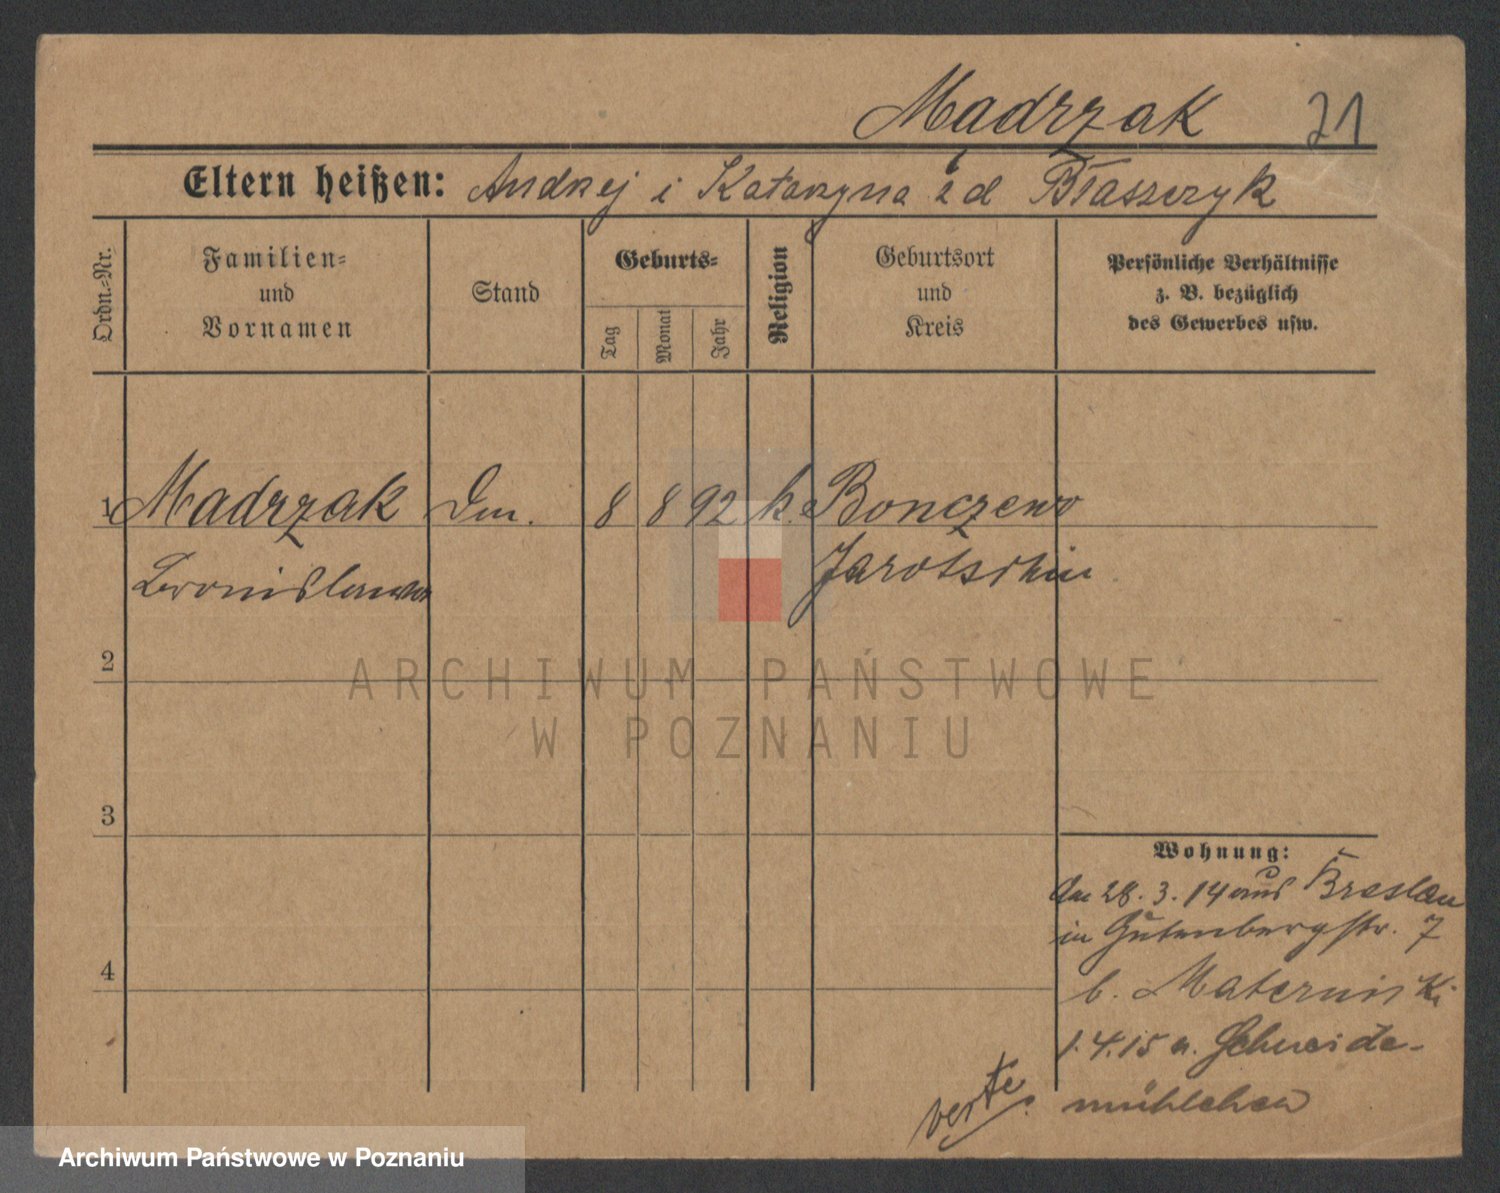 Mądrzak 21
Eltern heißen: Andrzej i Katarzyna z d Błaszczyk
Ordn.-Nr.
Familien-
und
Vornamen
Stand
Geburts-
Tag
Monat
Jahr
Religion
Geburtsort
und
Kreis
Persönliche Verhältnisse
z. B. bezüglich
des Gewerbes usw.
1 Madrzak 8 8 92 k. Bonczewo
Bronislawa Jarotschin
2
3
4
ARCHIWUM PAŃSTWOWE
W POZNANIU
Wohnung:
Am 28.3.14 aus Breslau
in Gutenbergstr. 7
b. Materniski
1.4.15 n. Schneide-
mühlchen
verte.
Archiwum Państwowe w Poznaniu